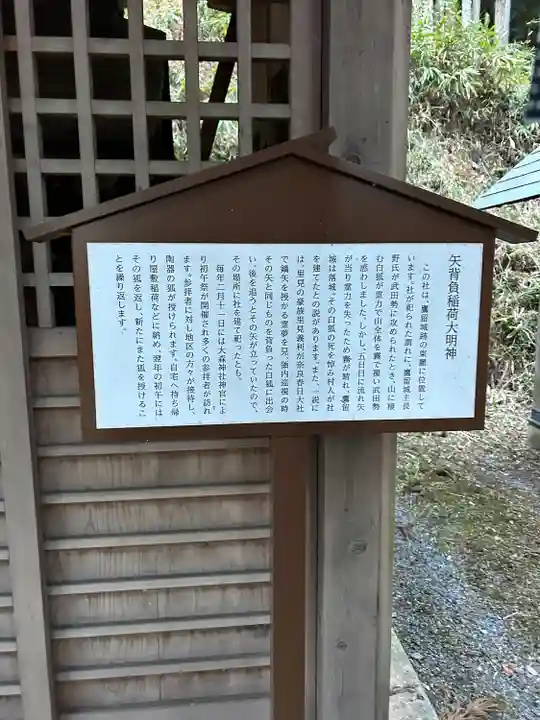 矢背負稲荷大明神
この社は、鷹留城跡の東麓に位置して
います。社が祀られた謂れに、鷹留城主長
野氏が武田勢に攻められたとき、山に棲
む白狐が霊力で山全体を霧で覆い武田勢
を惑わしました。しかし、五日目に流れ矢
が当り霊力を失ったため霧が晴れ、鷹留
城は落城。その白狐の死を悼み村人が社
を建てたとの説があります。また、一説に
は、里見の豪族里見義利が奈良春日大社
で鏑矢を授かる霊夢を見、領内巡視の時
その矢と同じものを背負った白狐に出会
い、後を追うとその矢が立っていたので、
その場所に社を建て祀ったとも。
毎年二月十一日には大森神社神官によ
り初午祭が開催され多くの参拝者が訪れ
ます。参拝者に対し地区の方々が接待し、
陶器の狐が授けられます。自宅へ持ち帰
り屋敷稲荷などに納め、翌年の初午には
その狐を返し、新たにまた狐を授けるこ
とを繰り返します。